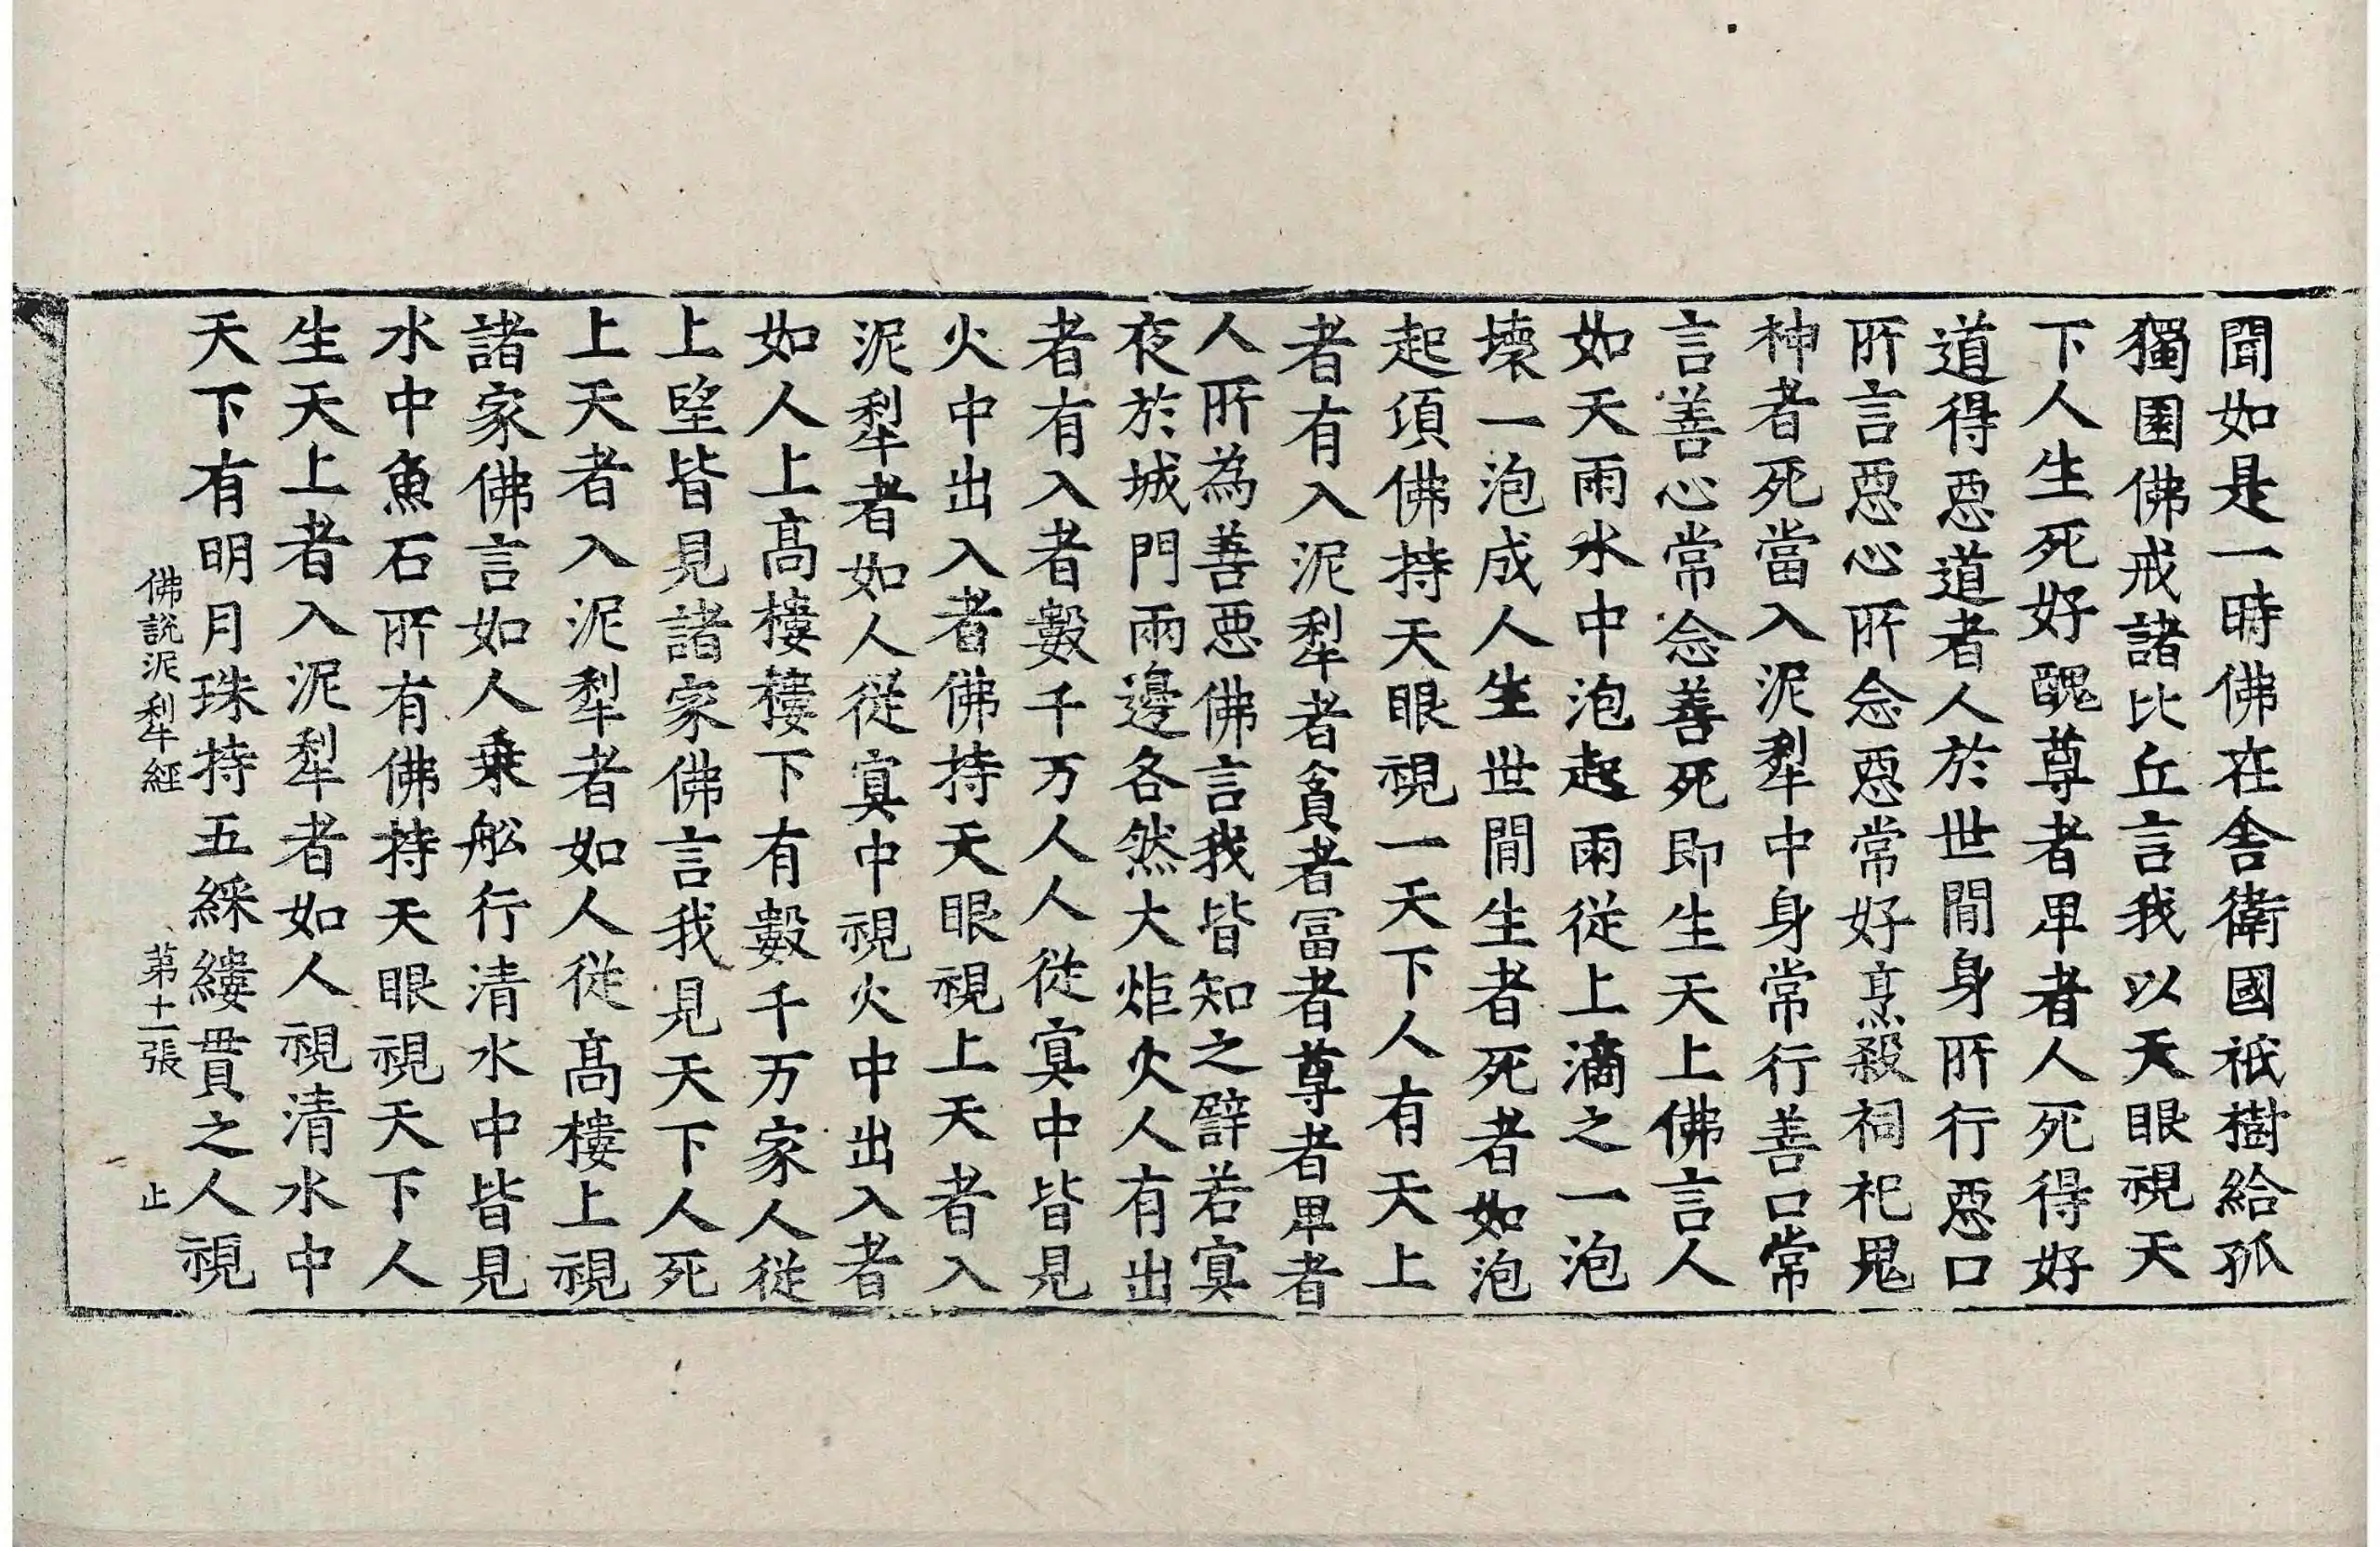 聞如是一時佛在舎衛國祇樹給孤
獨園佛戒諸比丘言我以天眼視天
下人生死好醜尊者卑者人死得好
道得惡道者人於世間身所行惡口
所言惡心所念惡常好烹殺祠祀鬼
神者死當入泥犁中身常行善口常
言善心常念善死即生天上佛言人
如天雨水中泡起雨従上滴之一泡
壊一泡成人生世間生者死者如泡
起頃佛持天眼視一天下人有天上
者有入泥犁者貧者冨者尊者卑者
人所為善惡佛言我皆知之譬若冥
夜於城門兩邊各然大炬火人有出
者有入者數千万人人従冥中皆見
火中出入者佛持天眼視上天者入
泥犁者如人従冥中視火中出入者
如人上髙樓樓下有數千万家人従
上望皆見諸家佛言我見天下人死
上天者入泥犁者如人従髙樓上視
諸家佛言如人乗舩行清水中皆見
水中魚石所有佛持天眼視天下人
生天上者入泥犁者如人視清水中
天下有明月珠持五綵縷貫之人視
佛說泥犁經 第十二張 止